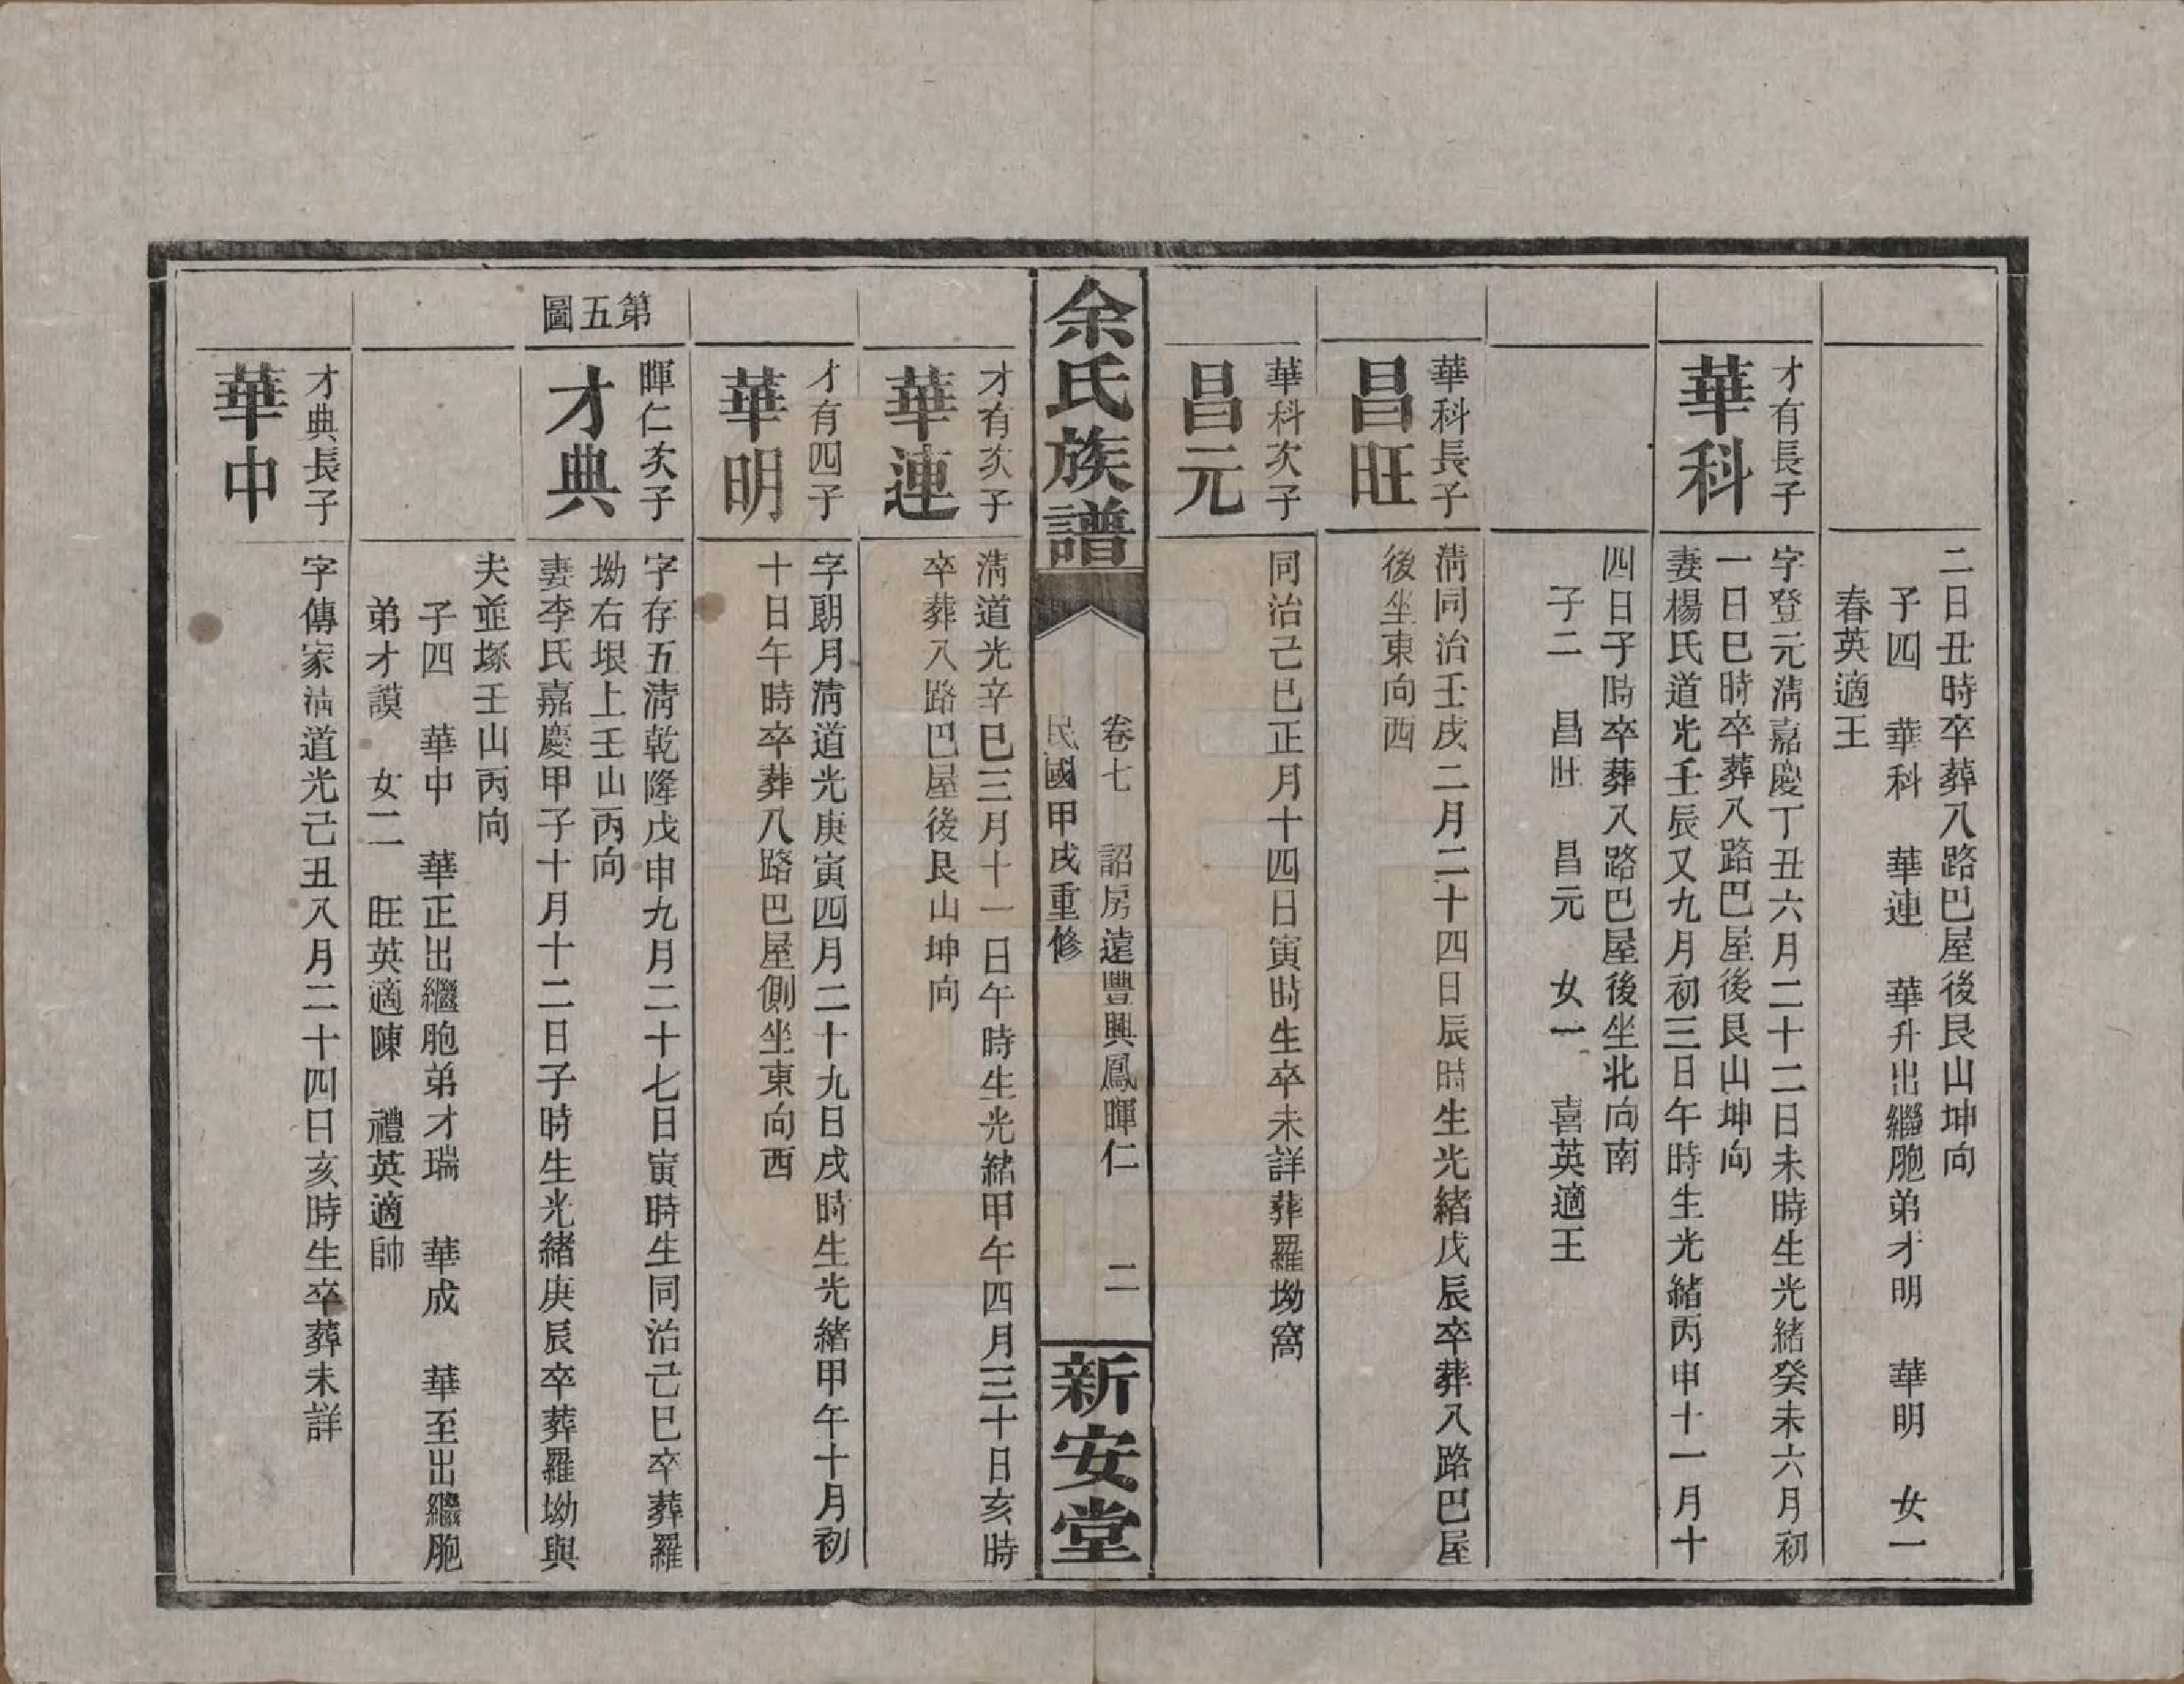 二日丑時卒葬八路巴屋後艮山坤向
子四　華科　華連　華升出繼胞弟才明　華明　女一
春英適王
才有長子
華科
字登元淸嘉慶丁丑六月二十二日未時生光緒癸未六月初
一日巳時卒葬八路巴屋後艮山坤向
妻楊氏道光壬辰又九月初三日午時生光緒丙申十一月十
四日子時卒葬八路巴屋後坐北向南
子二　昌旺　昌元　女一　喜英適王
華科長子
昌旺
淸同治壬戌二月二十四日辰時生光緒戊辰卒葬八路巴屋
後坐東向西
華科次子
昌元
同治己巳正月十四日寅時生卒未詳葬羅坳窩
余氏族譜
卷七　詔房遠豐興鳳暉仁　二
民國甲戌重修
新安堂
才有次子
華連
淸道光辛巳三月十一日午時生光緒甲午四月三十日亥時
卒葬八路巴屋後艮山坤向
才有四子
華明
字朗月淸道光庚寅四月二十九日戌時生光緒甲午十月初
十日午時卒葬八路巴屋側坐東向西
第五圖
暉仁次子
才典
字存五淸乾隆戊申九月二十七日寅時生同治己巳卒葬羅
坳右垠上壬山丙向
妻李氏嘉慶甲子十月十二日子時生光緒庚辰卒葬羅坳與
夫並塚壬山丙向
子四　華中　華正出繼胞弟才瑞　華成　華至出繼胞
弟才謨　女二　旺英適陳　禮英適帥
才典長子
華中
字傳家淸道光己丑八月二十四日亥時生卒葬未詳